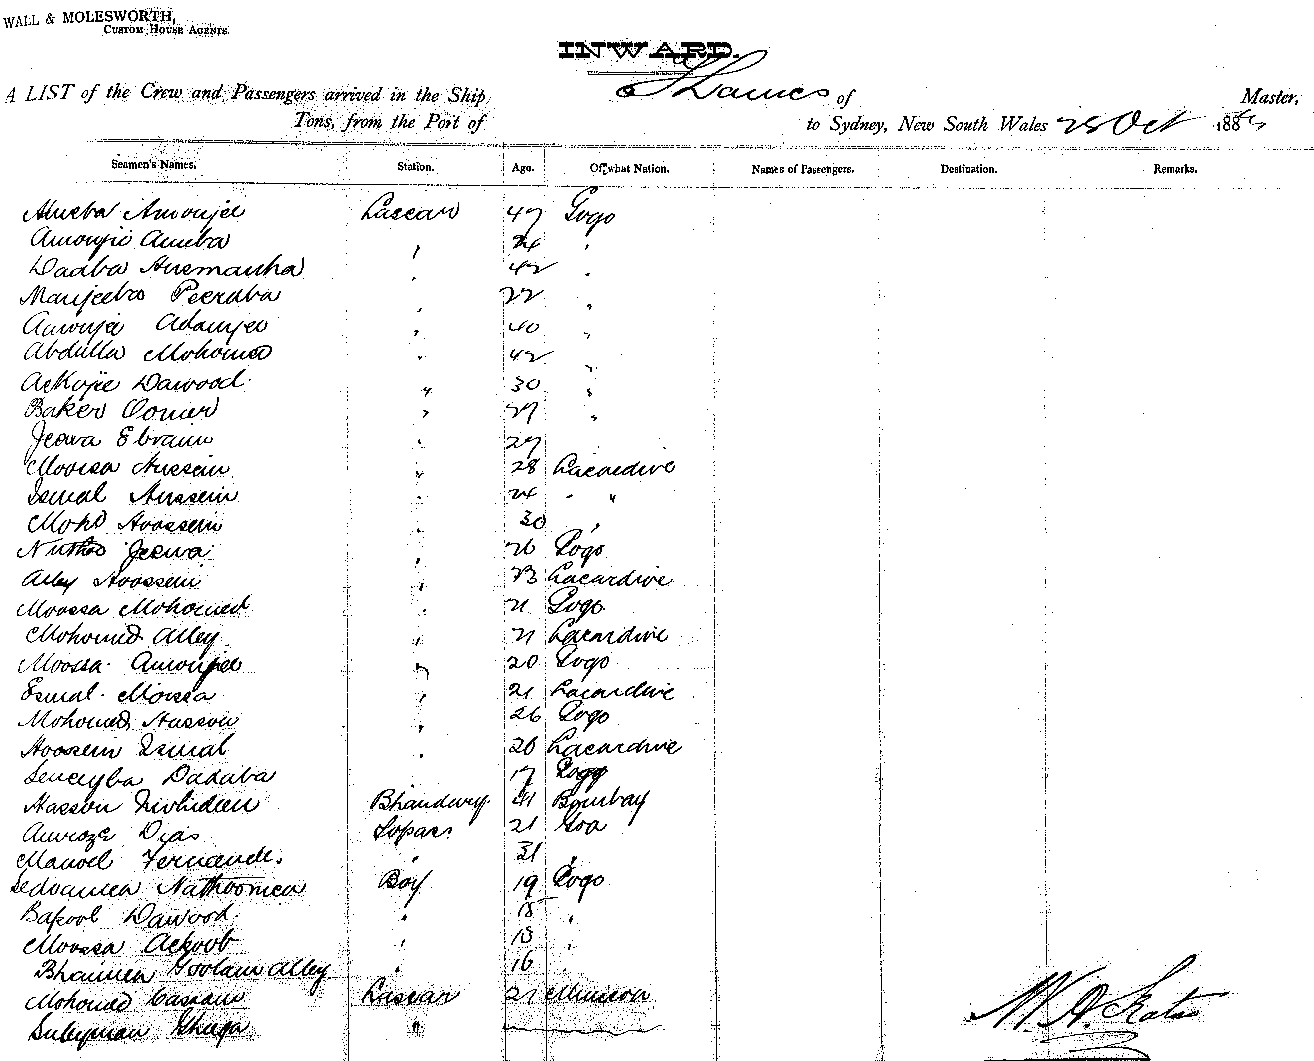 WALL & MOLESWORTH,
CUSTOM HOUSE AGENTS.
INWARD.
A LIST of the Crew and Passengers arrived in the Ship Thames of Master,
Tons, from the Port of to Sydney, New South Wales 28 Oct 188
Seamen's Names. Station. Age. Of what Nation. Names of Passengers. Destination. Remarks.
Amoojee Lascar 47 Gogo
Amoojee Ameba 24 "
Dadba 42 "
Manjeeba Peeraba 22 "
Amoojee Adamjee 40 "
Abdulla Mohomed 42 "
Ackojee Dawood " 30 "
Baker Oomer " 27 "
Jeewa Ebraim " 27
Moossa Hussein " 28 Lacardive
Ismal Hussein " 24 " "
Mohd Hoossein " 30 "
Nuthoo Jeewa " 26 Gogo
Alley Hoossein " 23 Lacardive
Moossa Mohomed " 21 Gogo
Mohomed Alley " 21 Lacardive
Moossa Amoojee " 20 Gogo
Esmal Moossa " 21 Lacardive
Mohomed Hasson " 26 Gogo
Hoossein Ismal " 26 Lacardive
Dadaba 17 Gogo
Hasson Bhandary 41 Bombay
Amroze Dias Topass 21 Goa
Manoel Fernandes " 31 "
Nathoomea Boy 19 Gogo
Dawood " 18 "
Moossa Ackoob " 18 "
Bhaimea Goolam Alley " 16
Mohomed Cassam Lascar 21
Suleyman "